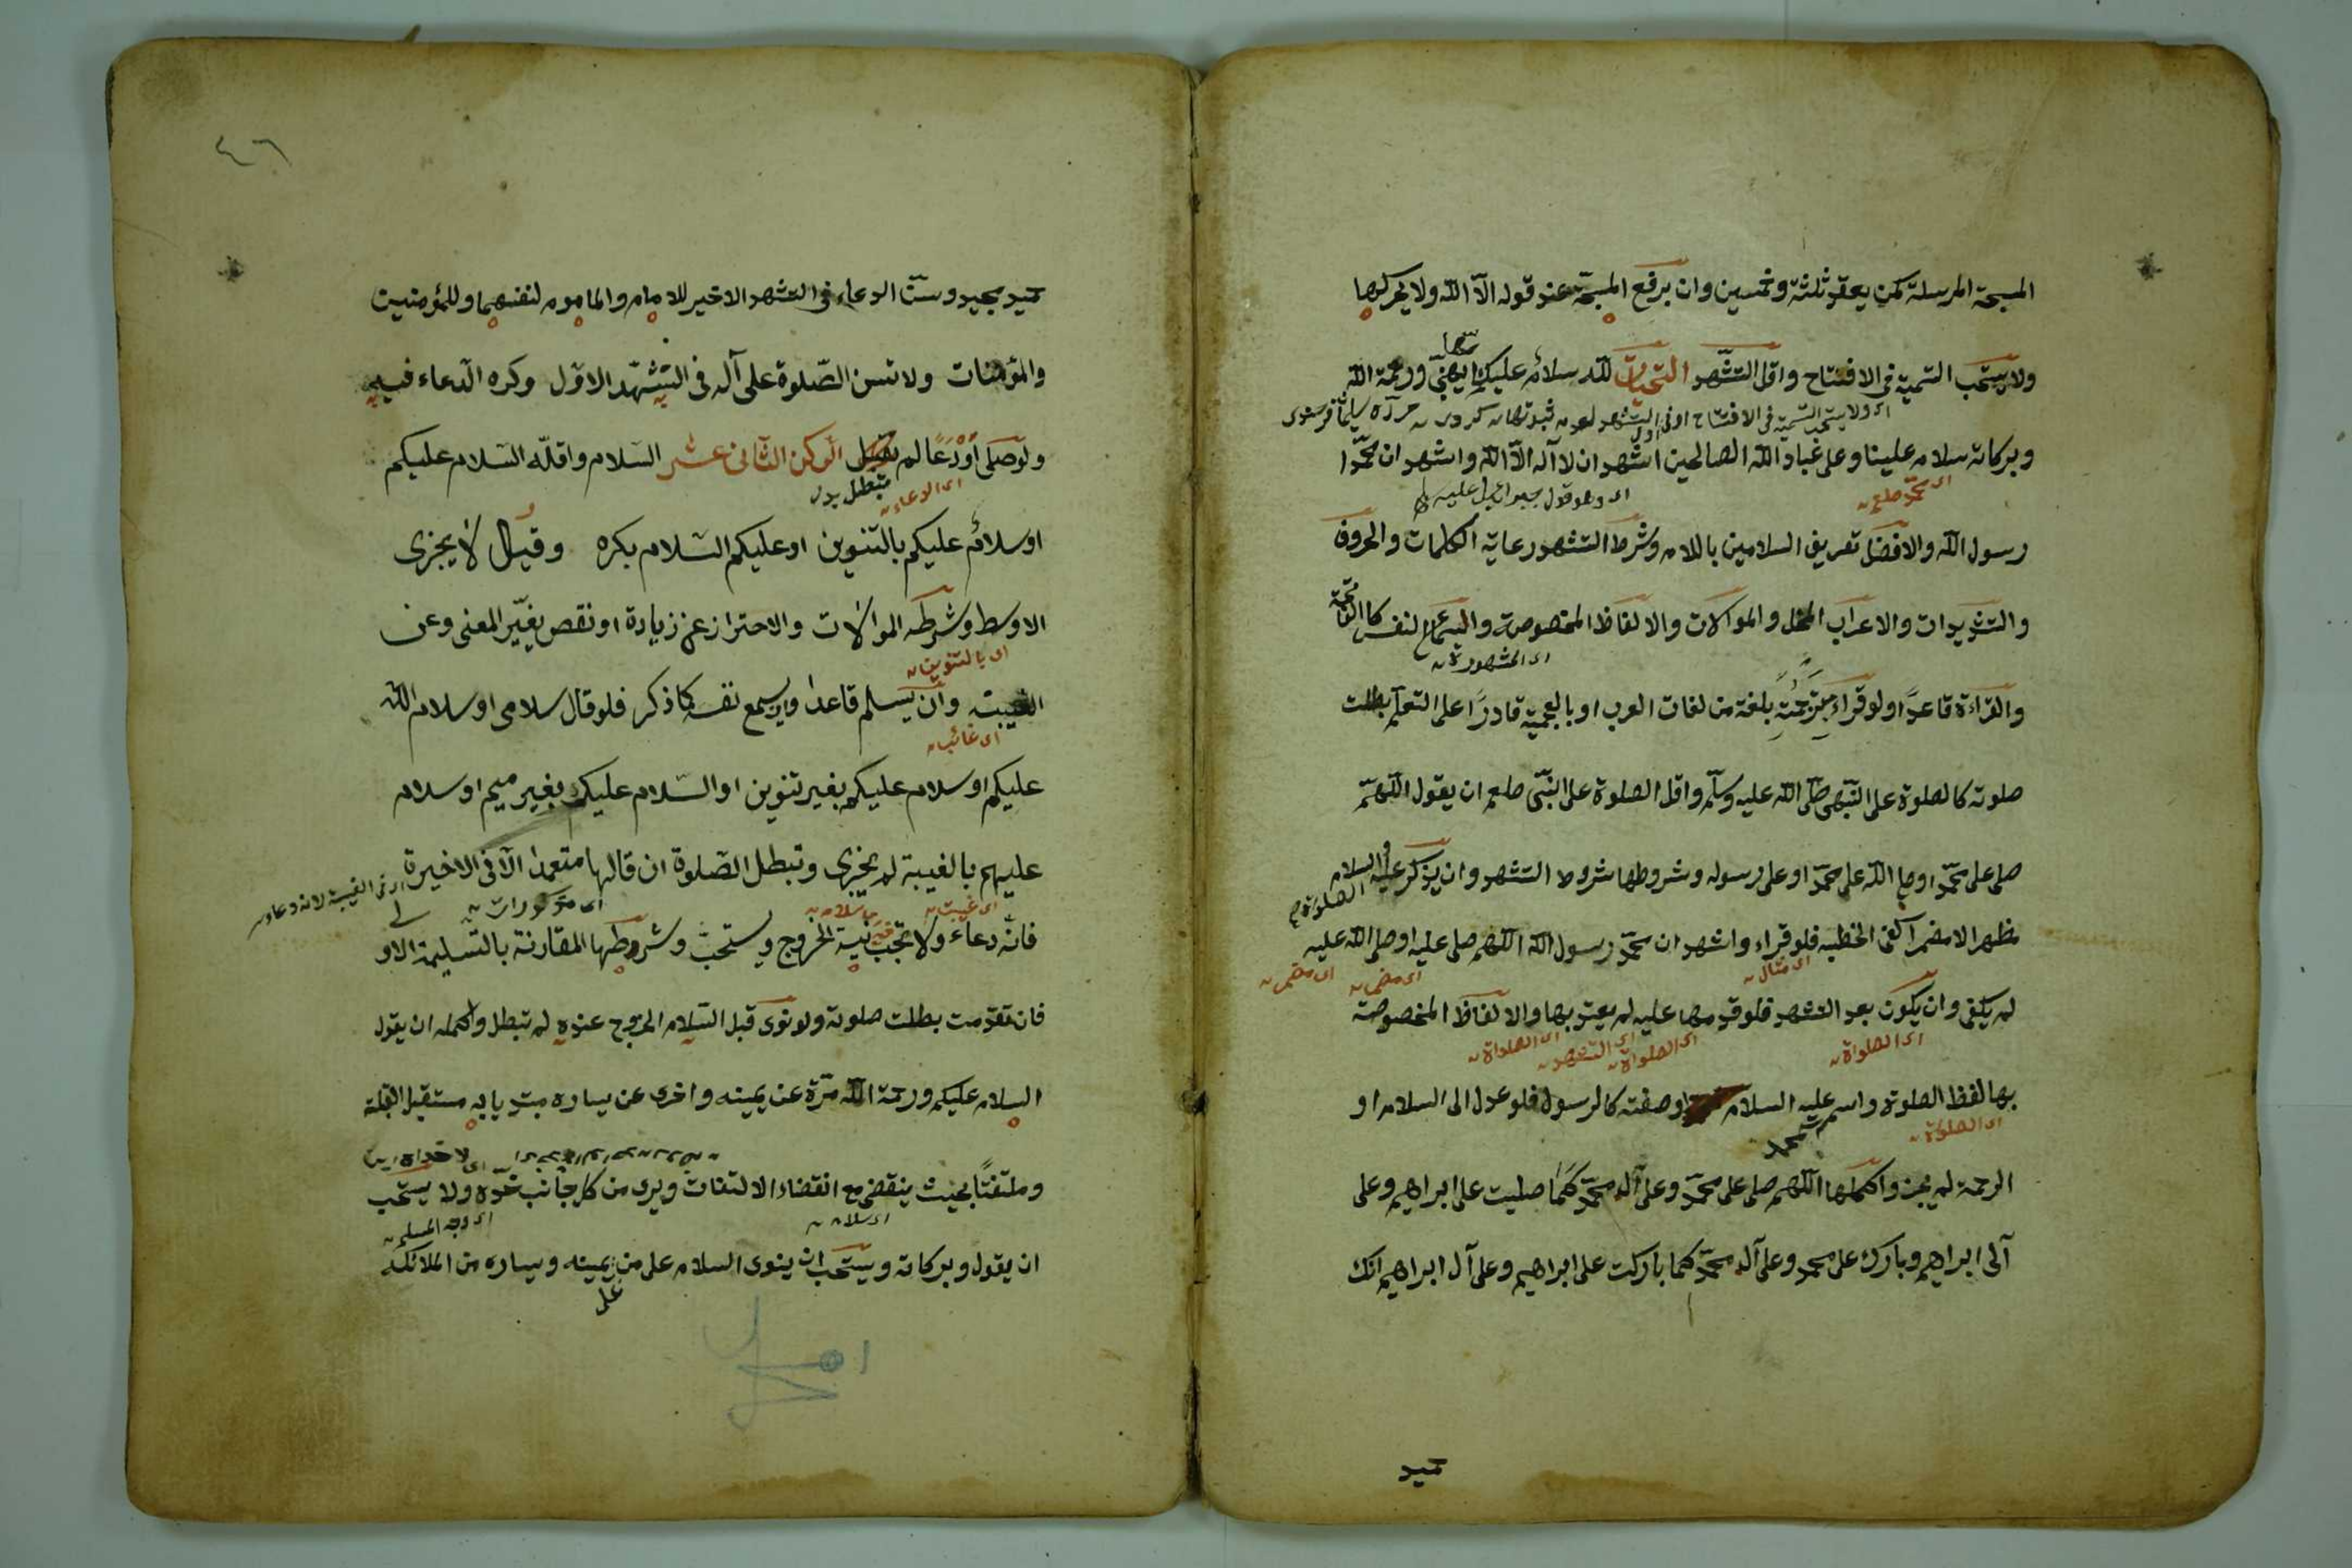 المسبحة المرسلة كمن يعقد ثلثة وخمسين وان يرفع المسبحة عند قوله الا الله ولا يحركها
ولا يستحب التسمية في الافتتاح واقل التشهد التحيات لله سلام عليك ايها النبي ورحمة الله
اى ولا يستحب التسمية في الافتتاح
وبركاته سلام علينا وعلى عباد الله الصالحين اشهد ان لا اله الا الله واشهد ان محمدا
اى محمد صلعم
رسول الله والافضل تعريف السلامين باللام وشرط التشهد رعاية الكلمات والحروف
والتشديدات والاعراب المخل والموالات والالفاظ المخصوصة والسماع لنفسه كالفاتحة
اى المشهورة
والقراءة قاعدا ولو قراء مترجمة بلغة من لغات العرب او بالعجمية قادرا على التعلم بطلت
صلوته كالصلوة على النبي صلى الله عليه وسلم واقل الصلوة على النبي صلعم ان يقول اللهم
صلى على محمد او صلى الله على محمد او على رسوله وشروطها شروط التشهد وان يذكر عليه السلام
مظهر الا مضمرا كفى الخطبة فلو قراء واشهد ان محمد رسول الله اللهم صلى عليه او صلى الله عليه
اى مثال اى مضمر اى مضمر
لم يكفى وان يكون بعد التشهد فلو قدمها عليه لم يعتد بها والالفاظ المخصوصة
اى الصلواة اى الصلواة اى التشهد اى الصلواة
بها لفظ الصلوة واسم عليه السلام محمد او صفته كالرسول فلو عدل الى السلام او
اى الصلوة
الرحمة لم يجز واكملها اللهم صلى على محمد وعلى آل محمد كما صليت على ابراهيم وعلى
آلى ابراهيم وبارك على محمد وعلى آل محمد كما باركت على ابراهيم وعلى آل ابراهيم انك
حميد
٤٦
حميد مجيد وسن الدعاء فى التشهد الاخير للامام والماموم لنفسهما وللمؤمنين
والمؤمنات ولا تسن الصلوة على آله فى التشهد الاول وكره الدعاء فيه
ولو صلى او دعا لم تبطل الركن الثانى عشر السلام واقله السلام عليكم
اى الدعاء
او سلام عليكم بالتنوين او عليكم السلام يكره وقيل لا يجزى
الاوسط وشرطه الموالات والاحتراز عن زيادة او نقص يغير المعنى وعن
اى بالتنوين
الغيبة وان يسلم قاعدا وان يسمع نفسه كما ذكر فلو قال سلامى او سلام الله
اى غائب
عليكم او سلام عليكم بغير تنوين او السلام عليك بغير ميم او سلام
عليهم بالغيبة لم يجزى وتبطل الصلوة ان قالها متعمدا الا فى الاخيرة
اى غيبت اى مذكورات
فانه دعاء ولا تجب نية الخروج ويستحب وشروطها المقارنة بالتسليمة الاولى
فان تقدمت بطلت صلوته ولو نوى قبل السلام الخروج عنده لم تبطل واكمله ان يقول
السلام عليكم ورحمة الله مرة عن يمينه واخرى عن يساره مبتديا به مستقبل القبلة
وملتفتا بحيث ينقضى مع انقضاء الالتفات ويرى من كل جانب خده ولا يستحب
اى سلام اى وجه المسلم
ان يقول وبركاته ويستحب ان ينوى السلام على من يمينه ويساره من الملائكة
على